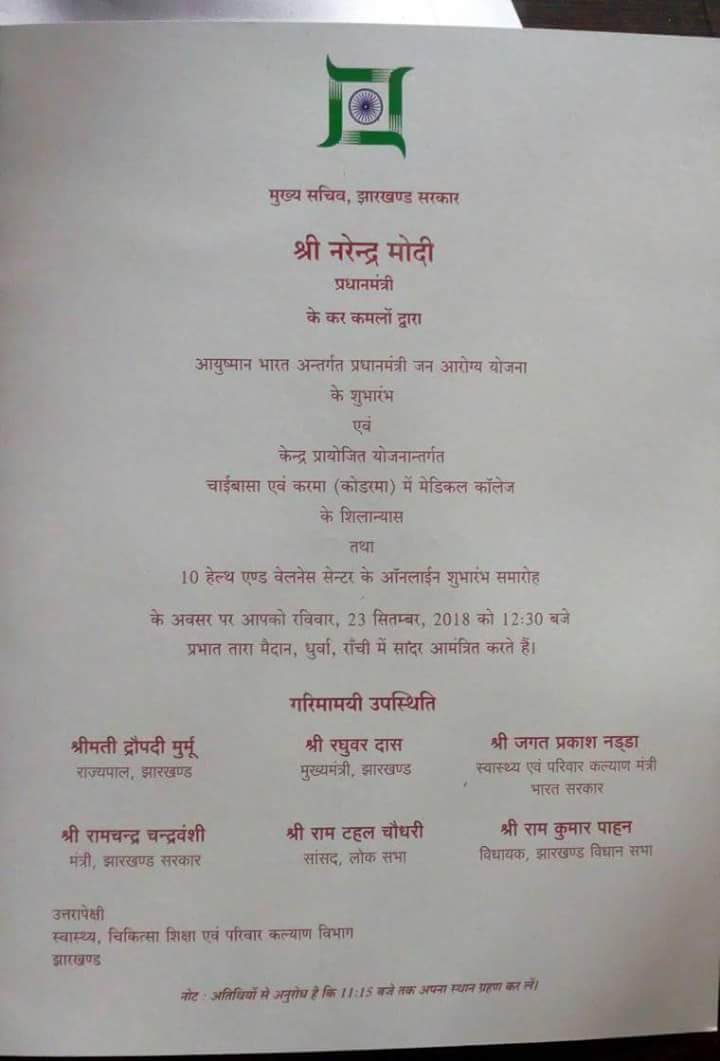 मुख्य सचिव, झारखण्ड सरकार
श्री नरेन्द्र मोदी
प्रधानमंत्री
के कर कमलों द्वारा
आयुष्मान भारत अन्तर्गत प्रधानमंत्री जन आरोग्य योजना
के शुभारंभ
एवं
केन्द्र प्रायोजित योजनान्तर्गत
चाईबासा एवं करमा (कोडरमा) में मेडिकल कॉलेज
के शिलान्यास
तथा
10 हेल्थ एण्ड वेलनेस सेन्टर के ऑनलाईन शुभारंभ समारोह
के अवसर पर आपको रविवार, 23 सितम्बर, 2018 को 12:30 बजे
प्रभात तारा मैदान, धुर्वा, राँची में सादर आमंत्रित करते हैं।
गरिमामयी उपस्थिति
श्रीमती द्रौपदी मुर्मू
राज्यपाल, झारखण्ड
श्री रघुवर दास
मुख्यमंत्री, झारखण्ड
श्री जगत प्रकाश नड्डा
स्वास्थ्य एवं परिवार कल्याण मंत्री
भारत सरकार
श्री रामचन्द्र चन्द्रवंशी
मंत्री, झारखण्ड सरकार
श्री राम टहल चौधरी
सांसद, लोक सभा
श्री राम कुमार पाहन
विधायक, झारखण्ड विधान सभा
उत्तरापेक्षी
स्वास्थ्य, चिकित्सा शिक्षा एवं परिवार कल्याण विभाग
झारखण्ड
नोट : अतिथियों से अनुरोध है कि 11:15 बजे तक अपना स्थान ग्रहण कर लें।